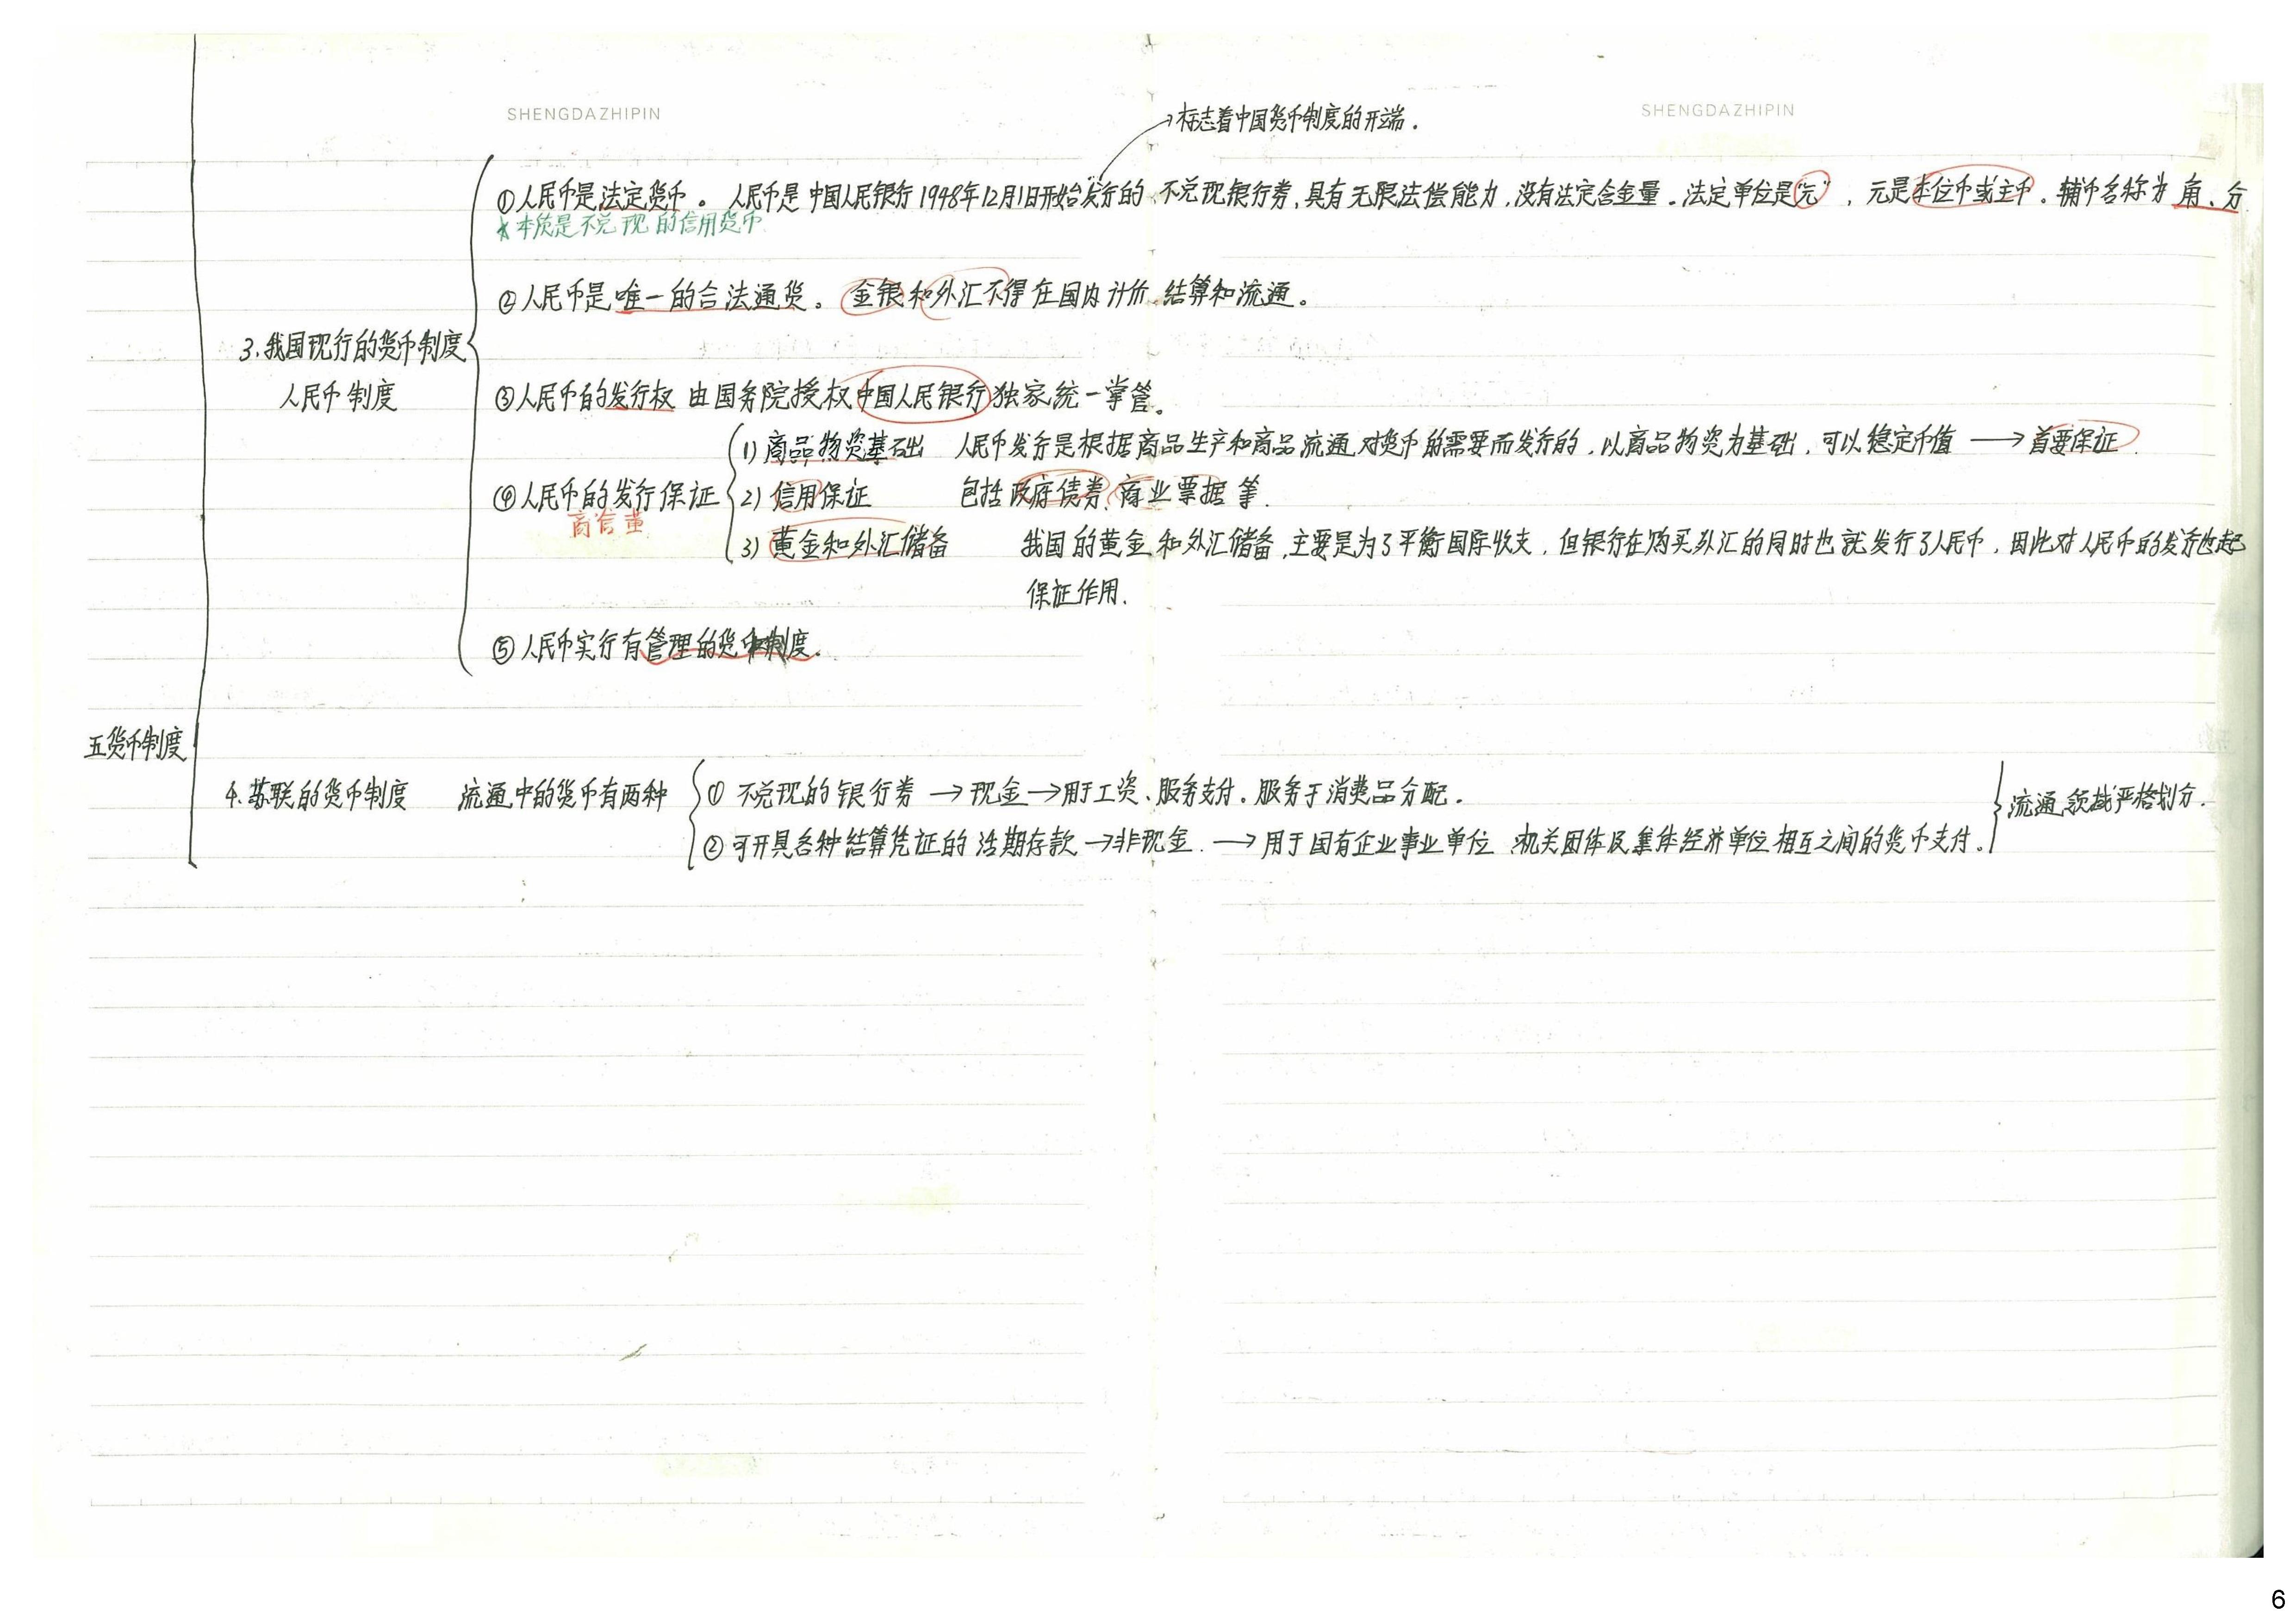 SHENGDAZHIPIN
SHENGDAZHIPIN
标志着中国货币制度的开端.
①人民币是法定货币。人民币是中国人民银行1948年12月1日开始发行的不兑现银行券,具有无限法偿能力,没有法定含金量.法定单位是“元”,元是本位币或主币.辅币名称为角、分
*本质是不兑现的信用货币
②人民币是唯一的合法通货。金银和外汇不得在国内计价、结算和流通。
3.我国现行的货币制度
人民币制度
③人民币的发行权 由国务院授权中国人民银行独家统一掌管。
④人民币的发行保证
商信黄
1)商品物资基础 人民币发行是根据商品生产和商品流通对货币的需要而发行的,以商品物资为基础,可以稳定币值→首要保证.
2)信用保证 包括政府债券、商业票据等.
3)黄金和外汇储备 我国的黄金和外汇储备,主要是为了平衡国际收支,但银行在购买外汇的同时也就发行了人民币,因此对人民币的发行也起
保证作用.
⑤人民币实行有管理的货币制度.
五货币制度
4.苏联的货币制度 流通中的货币有两种
①不兑现的银行券→现金→用于工资、服务支付。服务于消费品分配.
②可开具各种结算凭证的活期存款→非现金.→用于国有企业事业单位 机关团体及集体经济单位相互之间的货币支付.
流通领域严格划分.
6